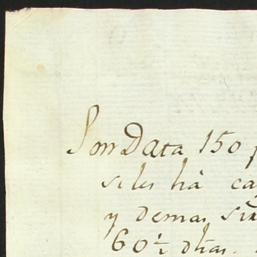 Son Data 150 p
se les há ca
y demas sir
60½ dhas.